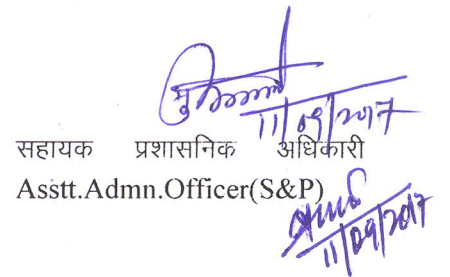 11/09/2017
सहायक प्रशासनिक अधिकारी
Asstt.Admn.Officer(S&P)
11/09/2017